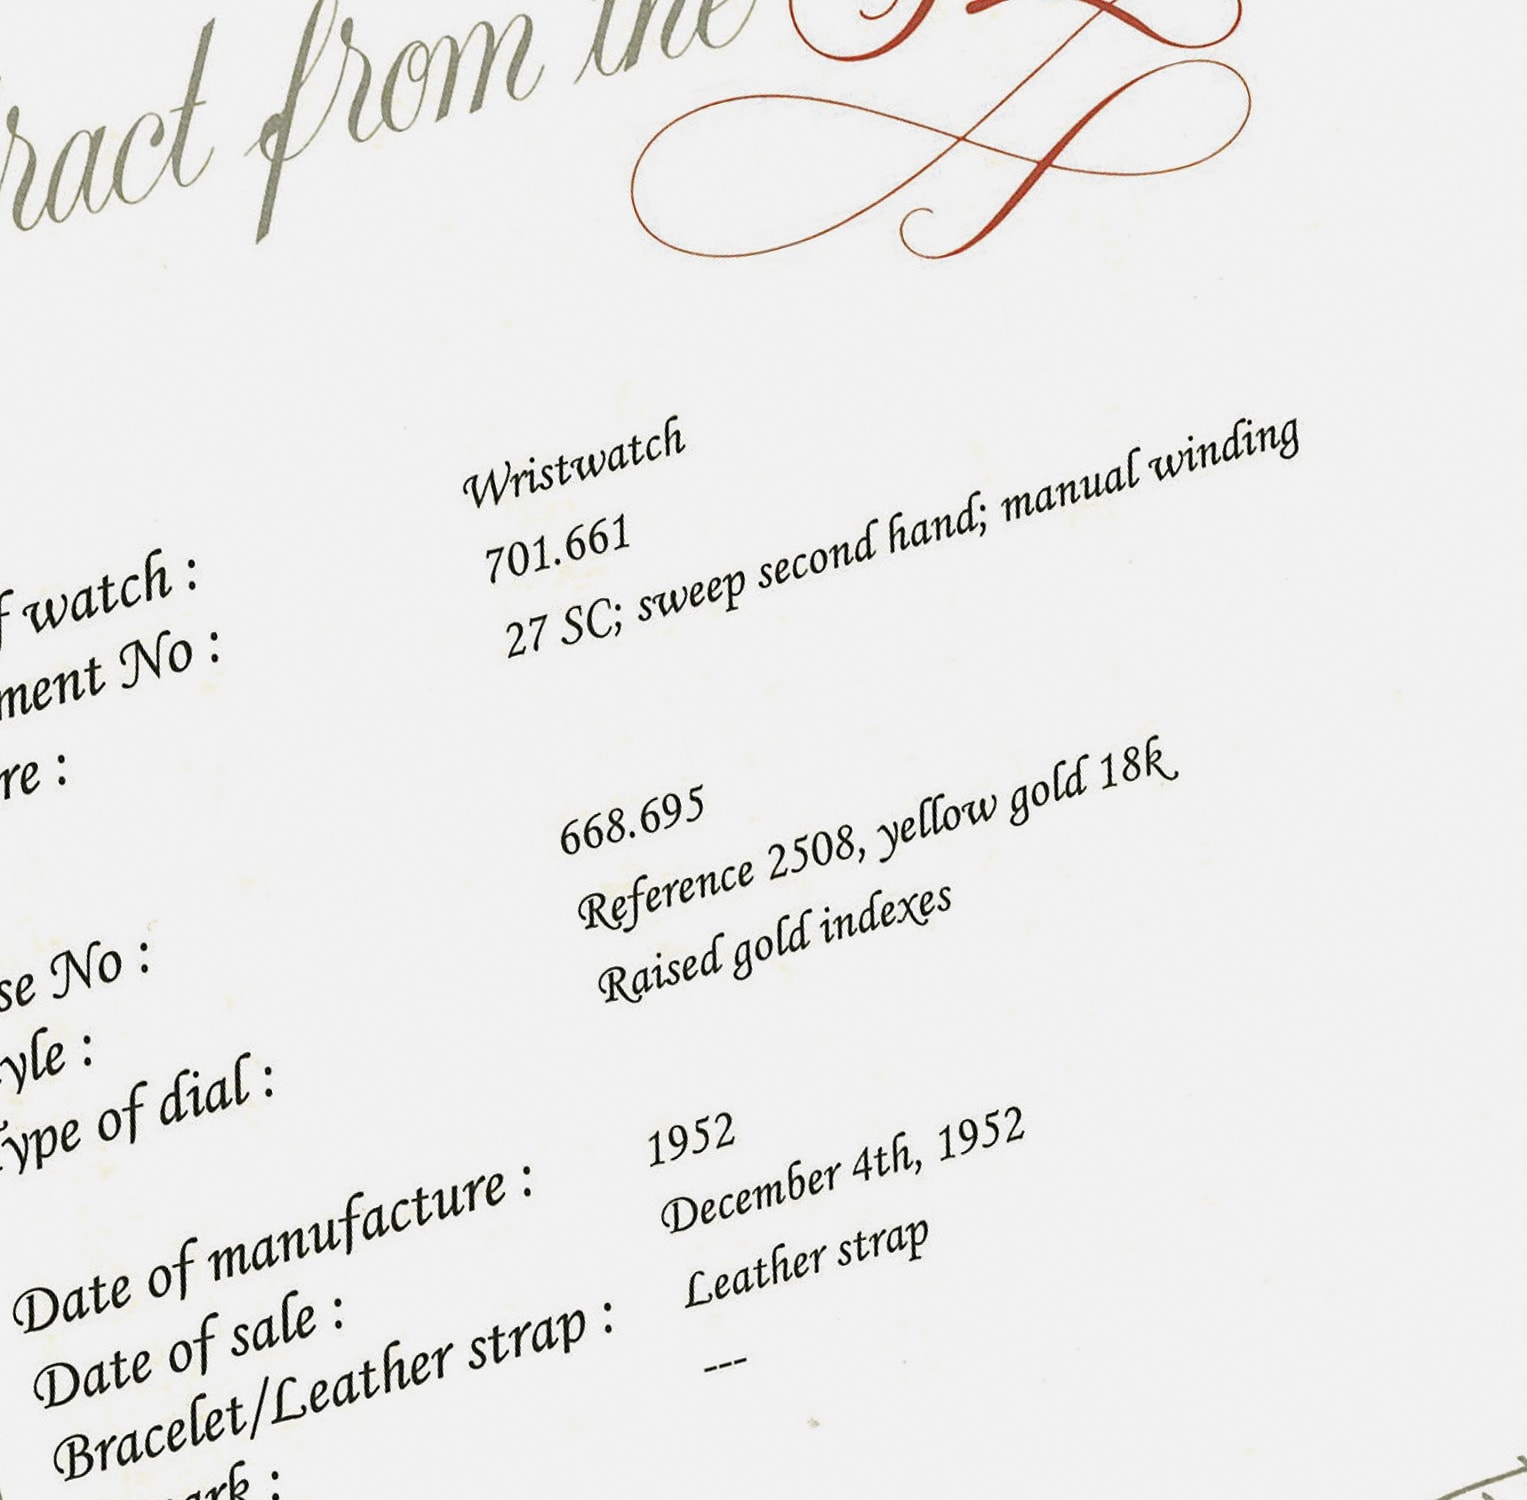 ract from the
f watch : Wristwatch
ment No : 701.661
re : 27 SC; sweep second hand; manual winding
se No : 668.695
yle : Reference 2508, yellow gold 18k
Type of dial : Raised gold indexes
Date of manufacture : 1952
Date of sale : December 4th, 1952
Bracelet/Leather strap : Leather strap
ark : ---